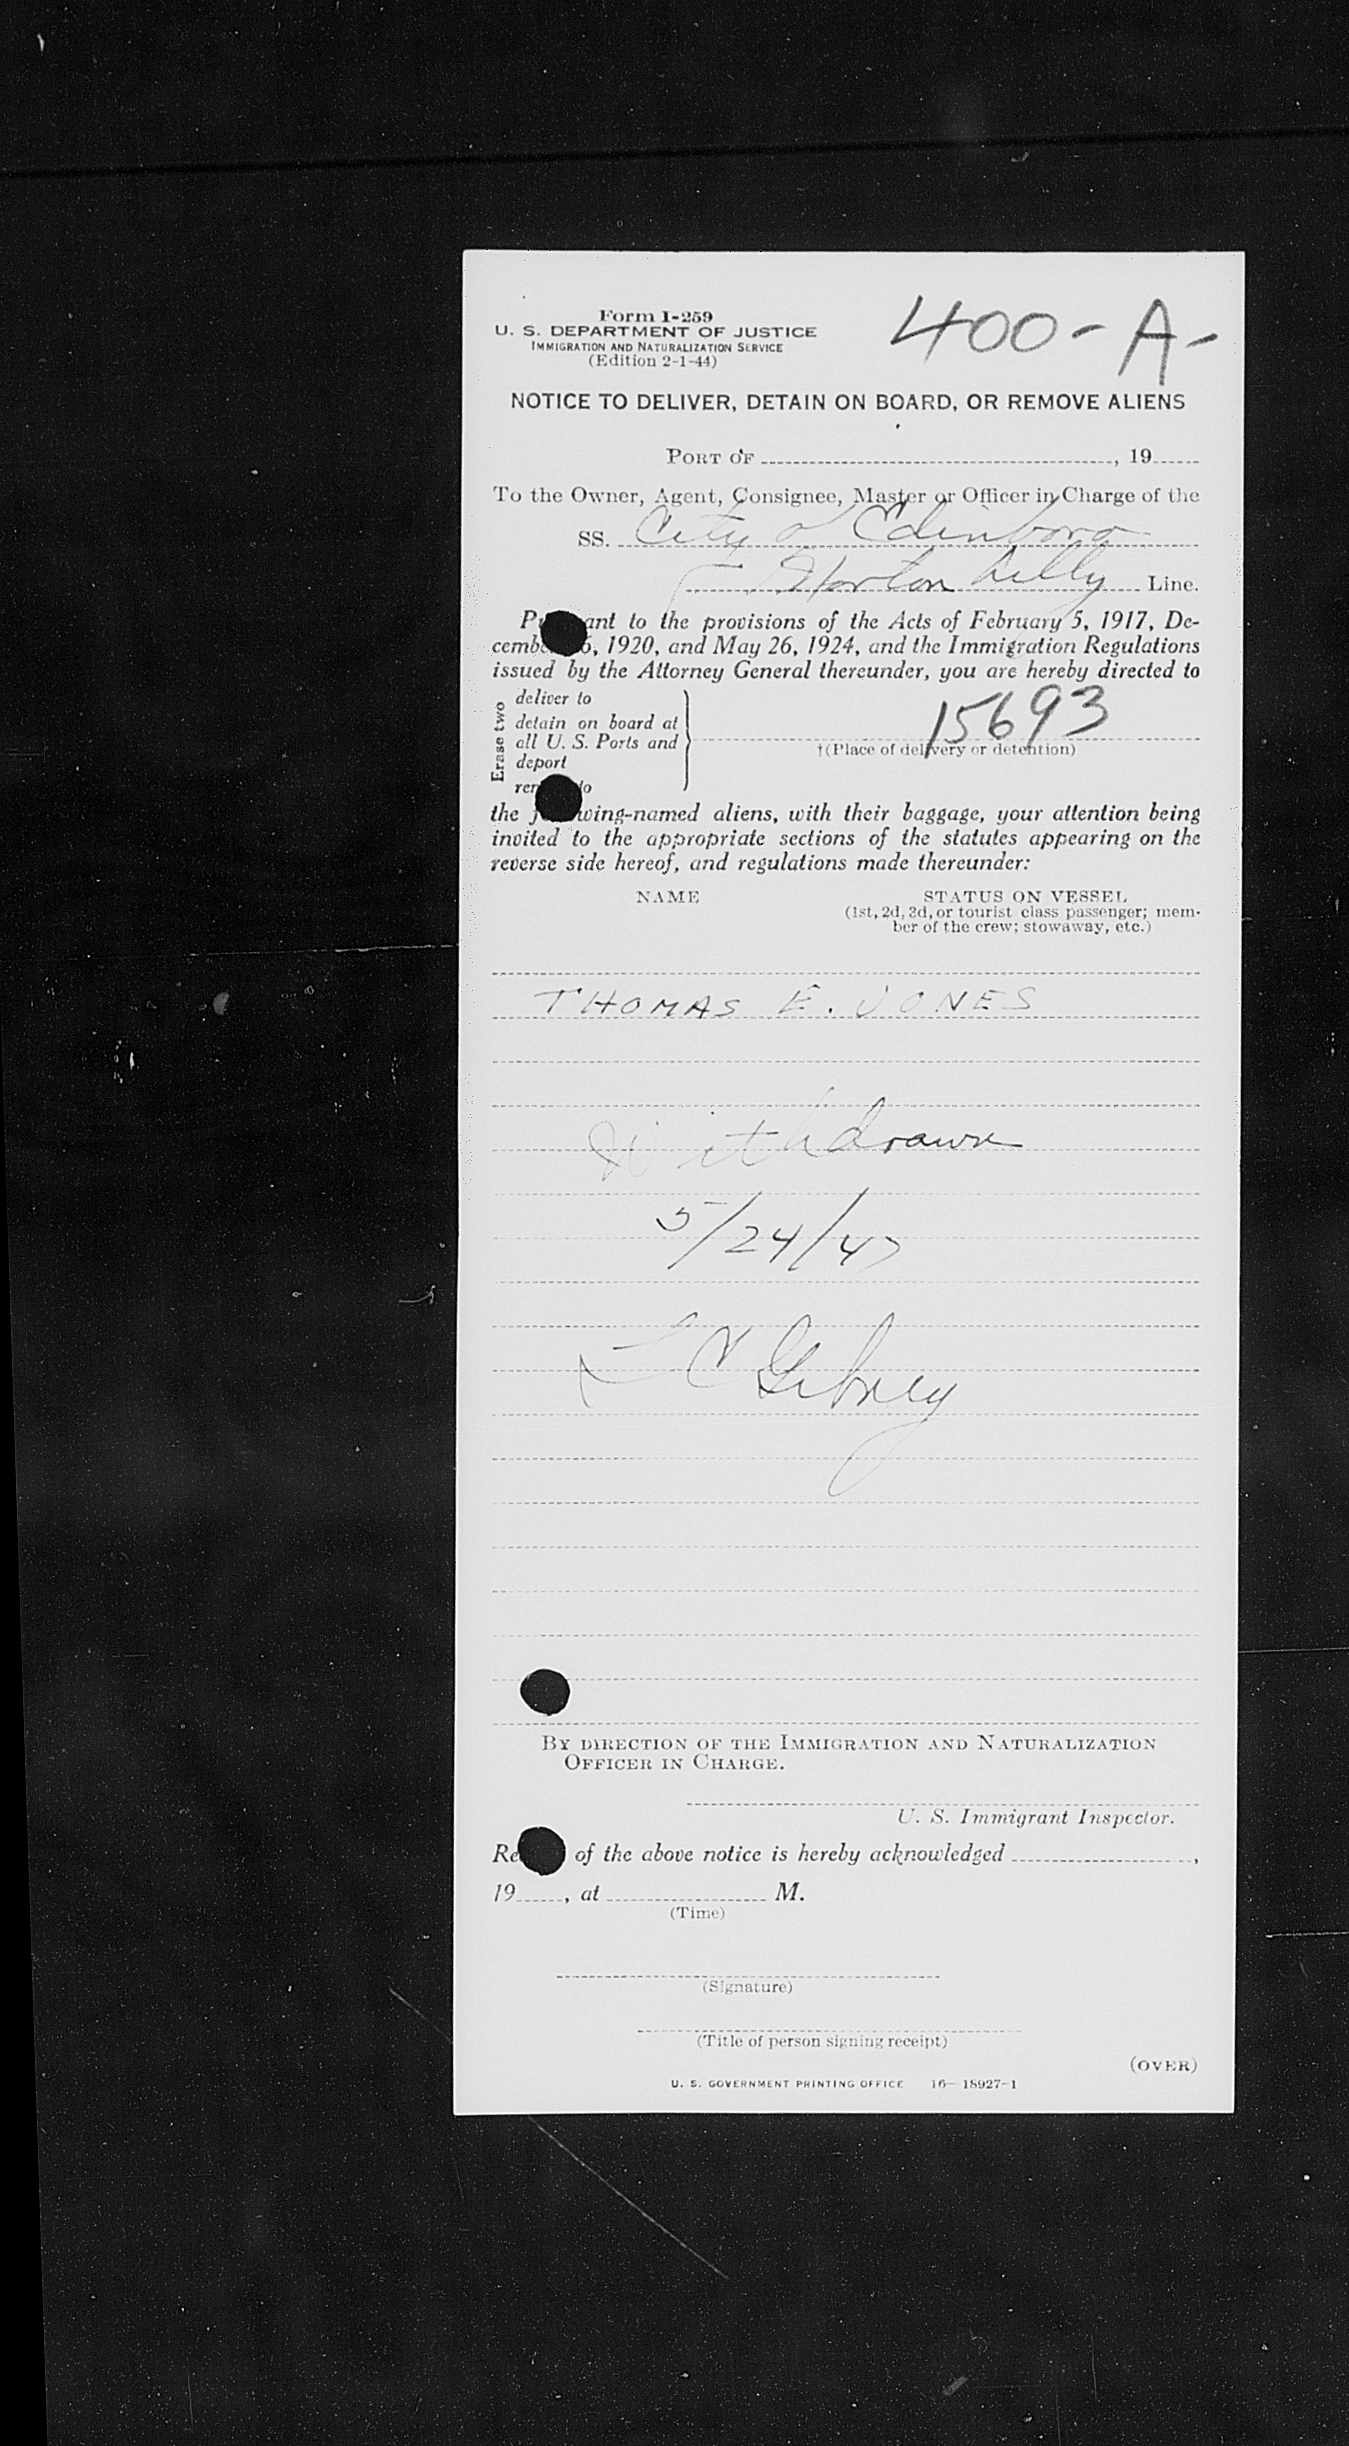 Form I-259
U. S. DEPARTMENT OF JUSTICE
IMMIGRATION AND NATURALIZATION SERVICE
(Edition 2-1-44)
400-A-
NOTICE TO DELIVER, DETAIN ON BOARD, OR REMOVE ALIENS
PORT OF , 19
To the Owner, Agent, Consignee, Master or Officer in Charge of the
SS. City of Edinboro
Norton Lilly Line.
P ant to the provisions of the Acts of February 5, 1917, De-
cembe 6, 1920, and May 26, 1924, and the Immigration Regulations
issued by the Attorney General thereunder, you are hereby directed to
Erase two
deliver to
detain on board at
all U. S. Ports and
deport
re to
15693
†(Place of delivery or detention)
the f wing-named aliens, with their baggage, your attention being
invited to the appropriate sections of the statutes appearing on the
reverse side hereof, and regulations made thereunder:
NAME STATUS ON VESSEL
(1st, 2d, 3d, or tourist class passenger; mem-
ber of the crew; stowaway, etc.)
THOMAS E. JONES
Withdrawn
5/24/47
L C Gibney
BY DIRECTION OF THE IMMIGRATION AND NATURALIZATION
OFFICER IN CHARGE.
U. S. Immigrant Inspector.
Re of the above notice is hereby acknowledged ,
19 , at M.
(Time)
(Signature)
(Title of person signing receipt)
(OVER)
U. S. GOVERNMENT PRINTING OFFICE 16—18927-1